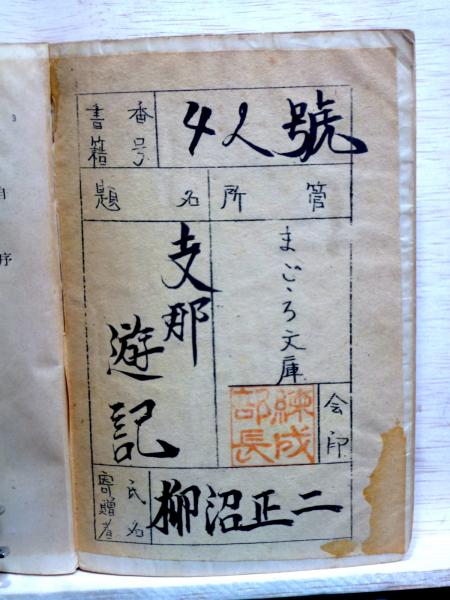 書籍
番号
4 號
題名
所管
支那
遊記
まごゝろ文庫
会印
練成
部長
寄贈者
氏名
柳沼正二
自
序